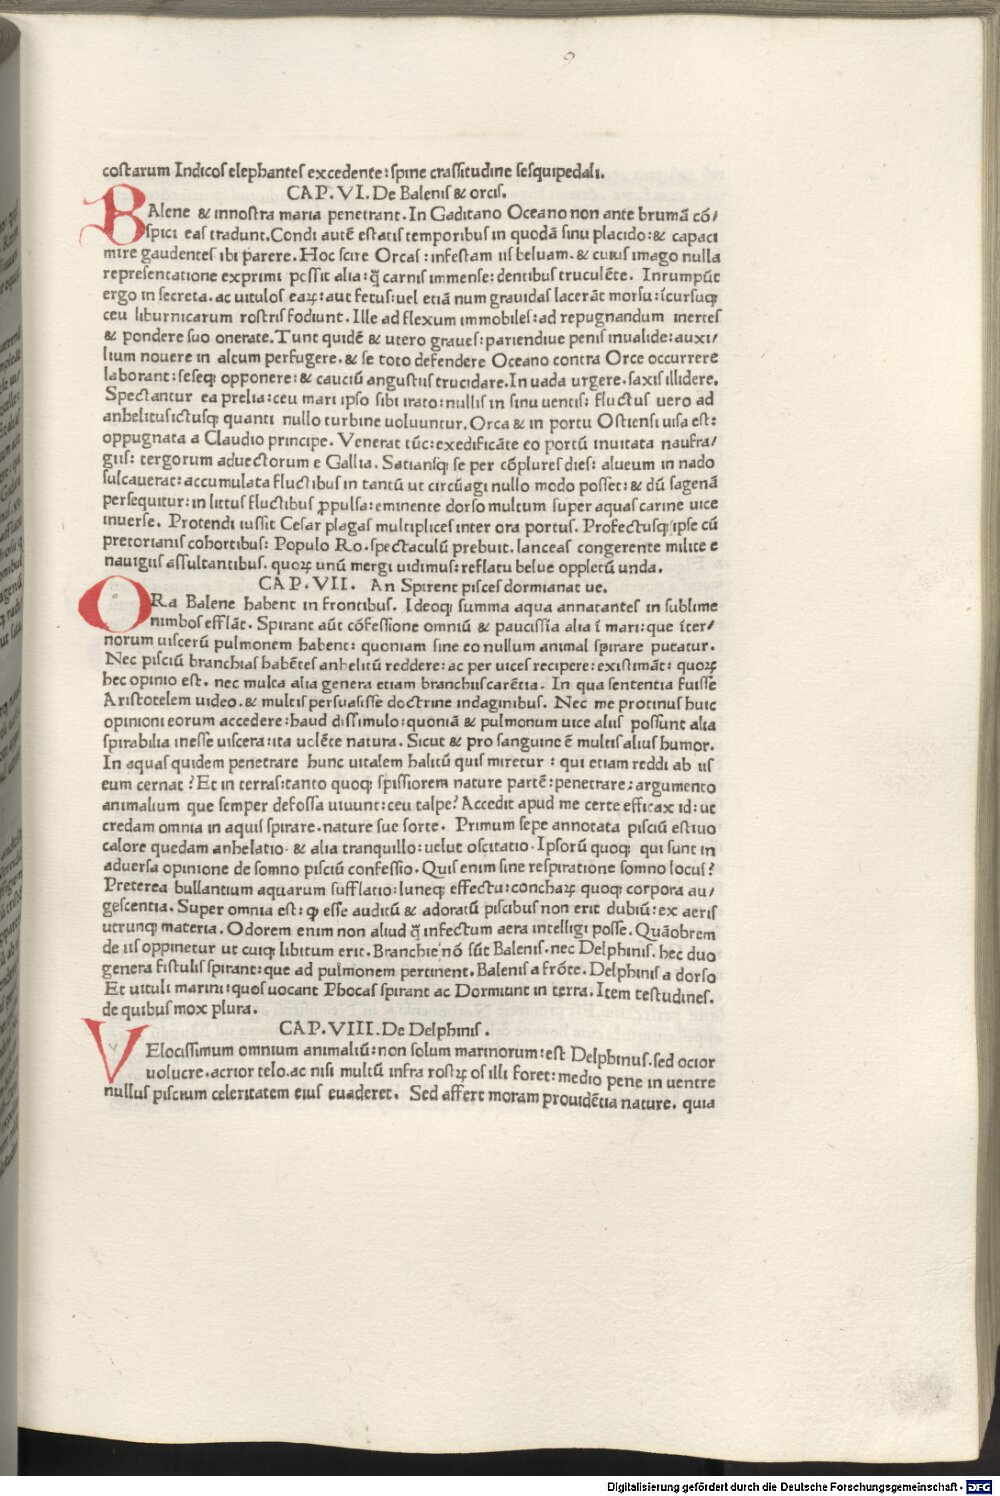 9
costarum Indicoſ elephanteſ excedente: ſpine craſſitudine ſeſquipedali.
CAP. VI. De Baleniſ & orciſ.
BAlene & innoſtra maria penetrant. In Gaditano Oceano non ante brumā cō/
ſpici eaſ tradunt. Condi autē eſtatiſ temporibuſ in quodā ſinu placido: & capaci
mire gaudenteſ ibi parere. Hoc ſcire Orcaſ: infeſtam iiſ beluam. & cuiuſ imago nulla
repreſentatione exprimi poſſit alia: q̄ carniſ immenſe: dentibuſ truculēte. Inrumpūt
ergo in ſecreta. ac uituloſ eaꝝ: aut fetuſ: uel etiā num grauidaſ lacerāt morſu: īcurſuqꝫ
ceu liburnicarum roſtriſ fodiunt. Ille ad flexum immobileſ: ad repugnandum inerteſ
& pondere ſuo onerate. Tunc quidē & utero graueſ: pariendiue peniſ inualide: auxi/
lium nouere in altum perfugere. & ſe toto defendere Oceano contra Orce occurrere
laborant: ſeſeqꝫ opponere: & cauciū anguſtiiſ trucidare. In uada urgere. ſaxiſ illidere.
Spectantur ea prelia: ceu mari ipſo ſibi irato: nulliſ in ſinu uentiſ: fluctuſ uero ad
anhelituſ ictuſqꝫ quanti nullo turbine uoluuntur. Orca & in portu Oſtienſi uiſa eſt:
oppugnata a Claudio principe. Venerat tūc: exedificāte eo portū inuitata naufra/
giiſ: tergorum aduectorum e Gallia. Satianſqꝫ ſe per cōplureſ dieſ: alueum in nado
ſulcauerat: accumulata fluctibuſ in tantū ut circūagi nullo modo poſſet: & dū ſagenā
perſequitur: in littuſ fluctibuſ ꝓpulſa: eminente dorſo multum ſuper aquaſ carine uice
inuerſe. Protendi iuſſit Ceſar plagaſ multipliceſ inter ora portuſ. Profectuſqꝫ ipſe cū
pretorianiſ cohortibuſ: Populo Ro. ſpectaculū prebuit. lanceaſ congerente milite e
nauigiiſ aſſultantibuſ. quoꝝ unū mergi uidimuſ: reflatu belue oppletū unda.
CAP. VII. An Spirent piſceſ dormianat ue.
ORa Balene habent in frontibuſ. Ideoqꝫ ſumma aqua annatanteſ in ſublime
nimboſ efflāt. Spirant aūt cōfeſſione omniū & pauciſſia alia ī mari: que īter/
norum uiſcerū pulmonem habent: quoniam ſine eo nullum animal ſpirare putatur.
Nec piſciū branchiaſ habēteſ anhelitū reddere: ac per uiceſ recipere: exiſtimāt: quoꝝ
hec opinio eſt. nec multa alia genera etiam branchiiſ carētia. In qua ſententia fuiſſe
Ariſtotelem uideo. & multiſ perſuaſiſſe doctrine indaginibuſ. Nec me protinuſ huic
opinioni eorum accedere: haud diſſimulo: quoniā & pulmonum uice aliiſ poſſunt alia
ſpirabilia ineſſe uiſcera: ita uolēte natura. Sicut & pro ſanguine ē multiſ aliuſ humor.
In aquaſ quidem penetrare hunc uitalem halitū quiſ miretur: qui etiam reddi ab iiſ
eum cernat? Et in terraſ: tanto quoqꝫ ſpiſſiorem nature partē: penetrare: argumento
animalium que ſemper defoſſa uiuunt: ceu talpe? Accedit apud me certe efficax id: ut
credam omnia in aquiſ ſpirare. nature ſue ſorte. Primum ſepe annotata piſciū eſtiuo
calore quedam anhelatio. & alia tranquillo: uelut oſcitatio. Ipſorū quoqꝫ qui ſunt in
aduerſa opinione de ſomno piſciū confeſſio. Quiſ enim ſine reſpiratione ſomno locuſ?
Preterea bullantium aquarum ſufflatio: luneqꝫ effectu: conchaꝝ quoqꝫ corpora au/
geſcentia. Super omnia eſt: ꝙ eſſe auditū & adoratū piſcibuſ non erit dubiū: ex aeriſ
utrunqꝫ materia. Odorem enim non aliud q̄ infectum aera intelligi poſſe. Quāobrem
de iiſ oppinetur ut cuiqꝫ libitum erit. Branchie nō ſūt Baleniſ. nec Delphiniſ. hec duo
genera fiſtuliſ ſpirant: que ad pulmonem pertinent. Baleniſ a frōte. Delphiniſ a dorſo
Et uituli marini: quoſ uocant Phocaſ ſpirant ac Dormiunt in terra. Item teſtudineſ.
de quibuſ mox plura.
CAP. VIII. De Delphiniſ.
VElociſſimum omnium animaliū: non ſolum marinorum: eſt Delphinuſ. ſed ocior
uolucre. acrior telo. ac niſi multū infra roſtꝝ oſ illi foret: medio pene in uentre
nulluſ piſcium celeritatem eiuſ euaderet. Sed affert moram prouidētia nature. quia
Digitalisierung gefördert durch die Deutsche Forschungsgemeinschaft - DFG